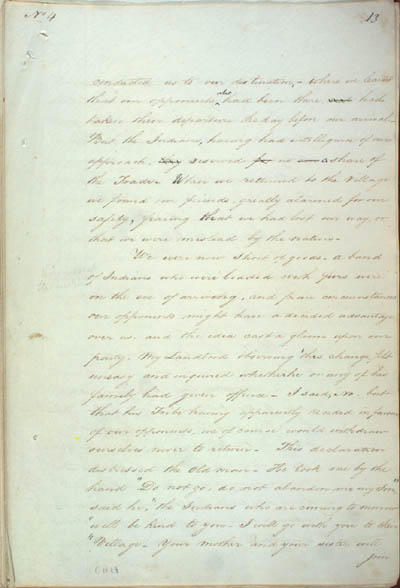 No 4 13
conducted us to our destination, - where we learned
that our opponents also had been there had
taken their departure the day before our arrival -
But the Indians, having had intelligence of our
approach, reserved for us a share of
the Trade. When we returned to the Village
we found our friends greatly alarmed for our
safety, fearing that we had lost our way, or
that we were mislead by the natives -
We were now short of goods - a band
of Indians who were loaded with furs were
on the eve of arriving, and from circumstances
our opponents might have a decided advantage
over us, and the idea cast a gloom upon our
party. My Landlord observing this change, felt
uneasy and inquired whether he or any of his
family had given offence - I said, No, but
that his Tribe having apparently decided in favor
of our opponents, we of course would withdraw
ourselves never to return - This declaration
distressed the Old man - He took me by the
hand "Do not go, do not abandon me my Son"
said he, "the Indians who are coming to morrow
"will be kind to you - I will go with you to their
"Village - Your mother and your sister will
join